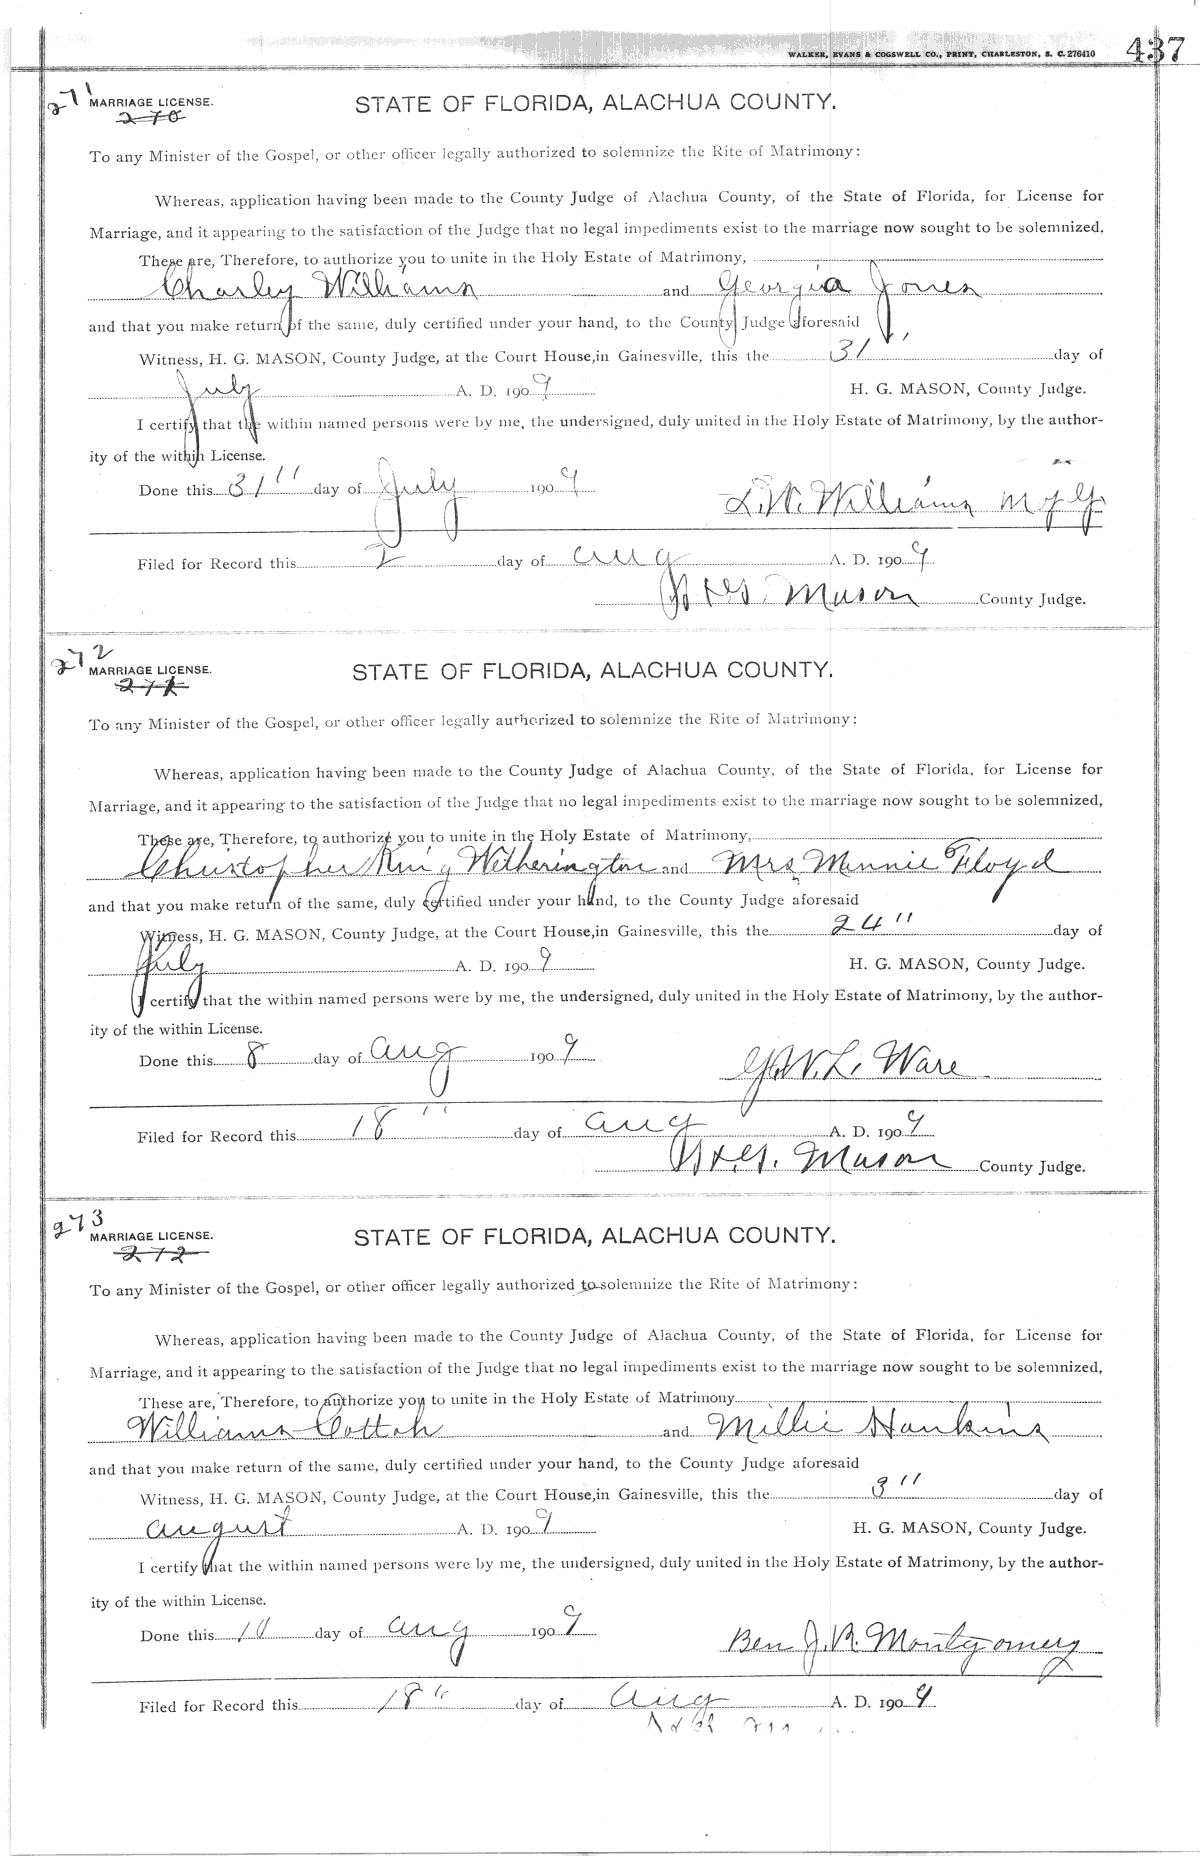 WALKER, EVANS & COGSWELL CO., PRINT, CHARLESTON, S. C. 276410 437
271
MARRIAGE LICENSE. STATE OF FLORIDA, ALACHUA COUNTY.
270
To any Minister of the Gospel, or other officer legally authorized to solemnize the Rite of Matrimony:
Whereas, application having been made to the County Judge of Alachua County, of the State of Florida, for License for
Marriage, and it appearing to the satisfaction of the Judge that no legal impediments exist to the marriage now sought to be solemnized,
These are, Therefore, to authorize you to unite in the Holy Estate of Matrimony,
Charley Williams and Georgia Jones
and that you make return of the same, duly certified under your hand, to the County Judge aforesaid
Witness, H. G. MASON, County Judge, at the Court House, in Gainesville, this the 31" day of
July A. D. 1909 H. G. MASON, County Judge.
I certify that the within named persons were by me, the undersigned, duly united in the Holy Estate of Matrimony, by the author-
ity of the within License.
Done this 31" day of July 1909 L. W. Williams M of G
Filed for Record this 2 day of Aug A. D. 1909
H. G. Mason County Judge.
272
MARRIAGE LICENSE. STATE OF FLORIDA, ALACHUA COUNTY.
271
To any Minister of the Gospel, or other officer legally authorized to solemnize the Rite of Matrimony:
Whereas, application having been made to the County Judge of Alachua County, of the State of Florida, for License for
Marriage, and it appearing to the satisfaction of the Judge that no legal impediments exist to the marriage now sought to be solemnized,
These are, Therefore, to authorize you to unite in the Holy Estate of Matrimony,
Christopher King Witherington and Mrs Minnie Floyd
and that you make return of the same, duly certified under your hand, to the County Judge aforesaid
Witness, H. G. MASON, County Judge, at the Court House, in Gainesville, this the 24" day of
July A. D. 1909 H. G. MASON, County Judge.
I certify that the within named persons were by me, the undersigned, duly united in the Holy Estate of Matrimony, by the author-
ity of the within License.
Done this 8 day of Aug 1909 G. W. L. Ware
Filed for Record this 18" day of Aug A. D. 1909
H. G. Mason County Judge.
273
MARRIAGE LICENSE. STATE OF FLORIDA, ALACHUA COUNTY.
272
To any Minister of the Gospel, or other officer legally authorized to solemnize the Rite of Matrimony:
Whereas, application having been made to the County Judge of Alachua County, of the State of Florida, for License for
Marriage, and it appearing to the satisfaction of the Judge that no legal impediments exist to the marriage now sought to be solemnized,
These are, Therefore, to authorize you to unite in the Holy Estate of Matrimony
Williams Cottah and Millie Hankins
and that you make return of the same, duly certified under your hand, to the County Judge aforesaid
Witness, H. G. MASON, County Judge, at the Court House, in Gainesville, this the 3" day of
August A. D. 1909 H. G. MASON, County Judge.
I certify that the within named persons were by me, the undersigned, duly united in the Holy Estate of Matrimony, by the author-
ity of the within License.
Done this 10 day of Aug 1909 Ben J. R. Montgomery
Filed for Record this 18" day of Aug A. D. 1909